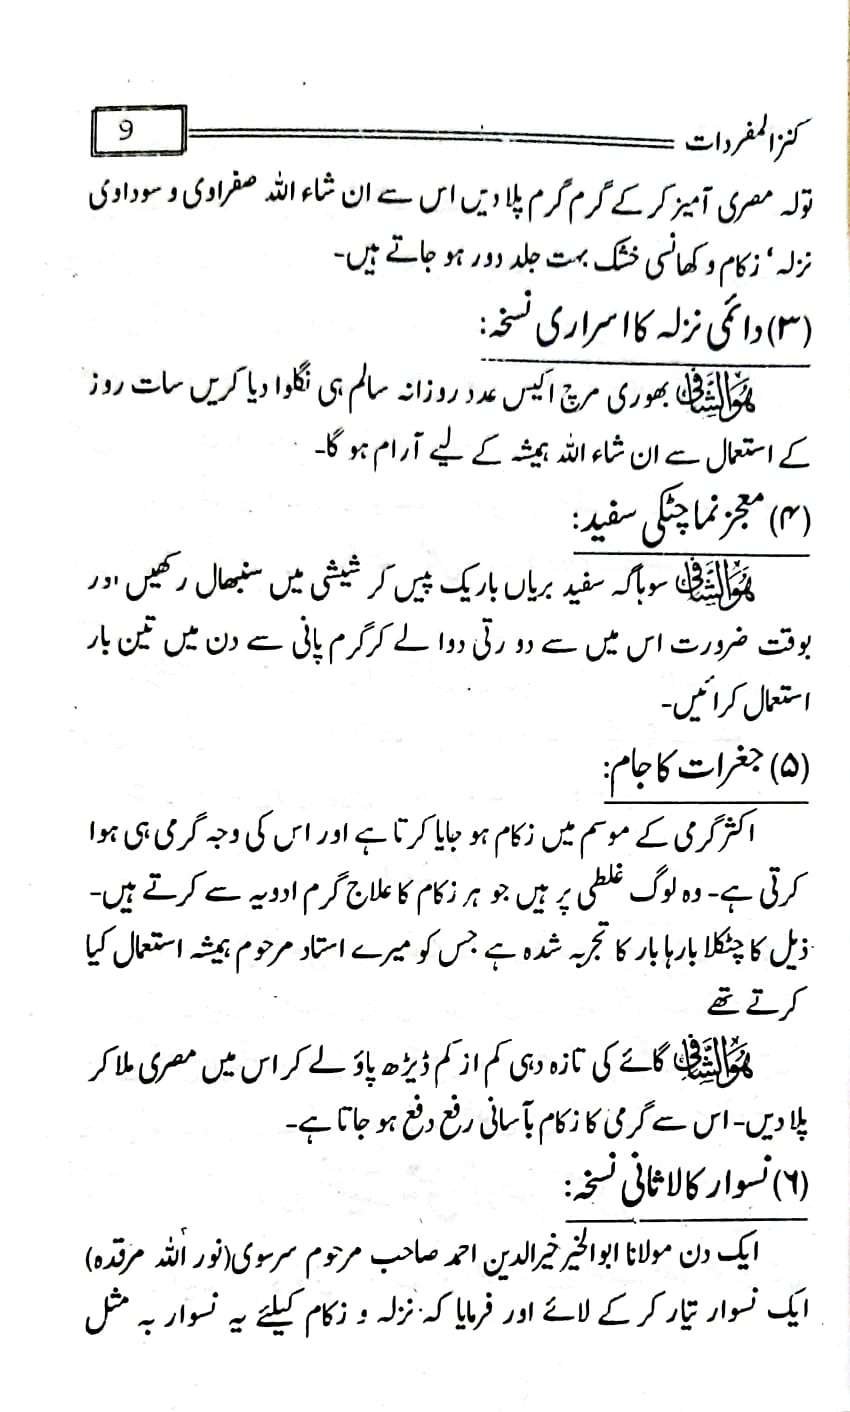 کنز المفردات 9
تولہ مصری آمیز کر کے گرم گرم پلا دیں اس سے ان شاء اللہ صفراوی و سوداوی
نزلہ‘ زکام و کھانسی خشک بہت جلد دور ہو جاتے ہیں۔
(۳) دائمی نزلہ کا اسراری نسخہ:
ھُوَالشَّافِی بھوری مرچ اکیس عدد روزانہ سالم ہی نگلوا دیا کریں سات روز
کے استعمال سے ان شاء اللہ ہمیشہ کے لیے آرام ہو گا۔
(۴) معجز نما چٹکی سفید:
ھُوَالشَّافِی سوہاگہ سفید بریاں باریک پیس کر شیشی میں سنبھال رکھیں اور
بوقت ضرورت اس میں سے دو رتی دوا لے کر گرم پانی سے دن میں تین بار
استعمال کرائیں۔
(۵) جغرات کا جام:
اکثر گرمی کے موسم میں زکام ہو جایا کرتا ہے اور اس کی وجہ گرمی ہی ہوا
کرتی ہے۔ وہ لوگ غلطی پر ہیں جو ہر زکام کا علاج گرم ادویہ سے کرتے ہیں۔
ذیل کا چٹکلا بارہا بار کا تجربہ شدہ ہے جس کو میرے استاد مرحوم ہمیشہ استعمال کیا
کرتے تھے
ھُوَالشَّافِی گائے کی تازہ دہی کم از کم ڈیڑھ پاؤ لے کر اس میں مصری ملا کر
پلا دیں۔ اس سے گرمی کا زکام بآسانی رفع دفع ہو جاتا ہے۔
(۶) نسوار کا لاثانی نسخہ:
ایک دن مولانا ابوالخیر خیرالدین احمد صاحب مرحوم سرسوی (نور اللہ مرقدہ)
ایک نسوار تیار کر کے لائے اور فرمایا کہ نزلہ و زکام کیلئے یہ نسوار بہ مثل